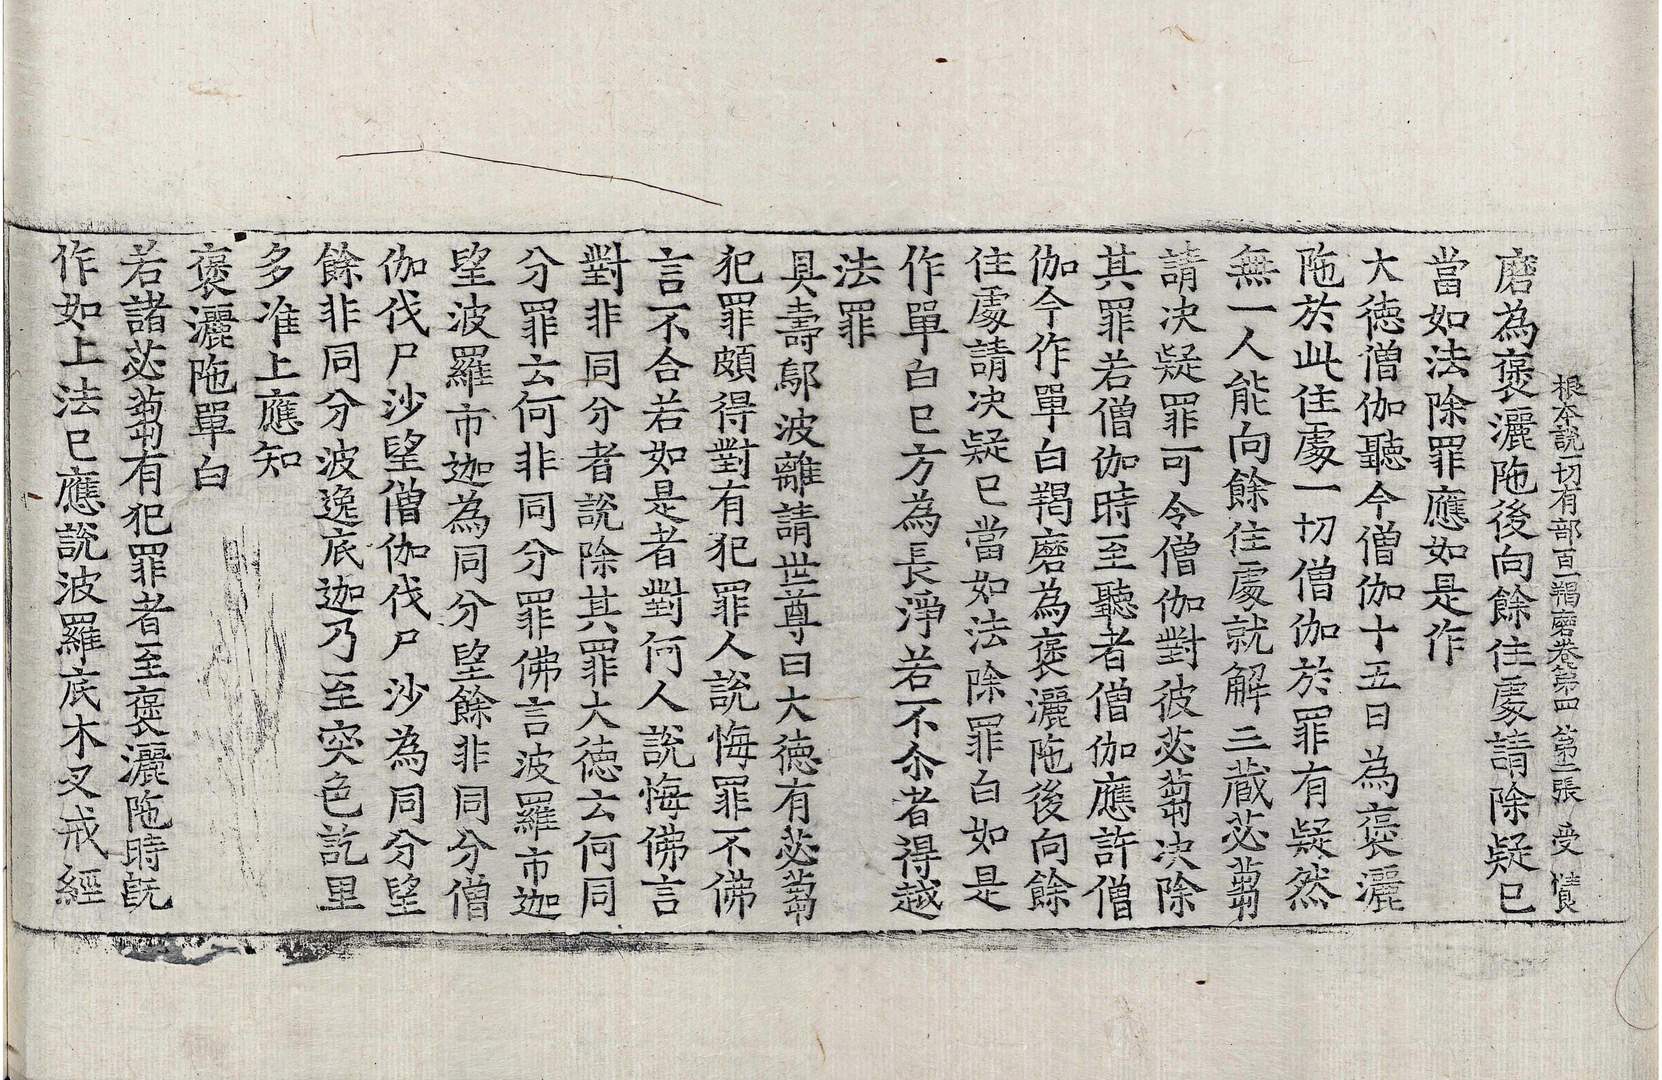 根本說一切有部百一羯磨卷第四 第二張 受
磨為褒灑陁後向餘住處請除疑已
當如法除罪應如是作
大德僧伽聽今僧伽十五日為褒灑
陁於此住處一切僧伽於罪有疑然
無一人能向餘住處就解三藏苾蒭
請决疑罪可令僧伽對彼苾蒭决除
其罪若僧伽時至聽者僧伽應許僧
伽今作單白羯磨為褒灑陁後向餘
住處請决疑已當如法除罪白如是
作單白已方為長淨若不尒者得越
法罪
具壽鄔波離請世尊曰大德有苾蒭
犯罪頗得對有犯罪人說悔罪不佛
言不合若如是者對何人說悔佛言
對非同分者說除其罪大德云何同
分罪云何非同分罪佛言波羅市迦
望波羅市迦為同分望餘非同分僧
伽伐尸沙望僧伽伐尸沙為同分望
餘非同分波逸底迦乃至突色訖里
多准上應知
褒灑陁單白
若諸苾蒭有犯罪者至褒灑陁時旣
作如上法已應說波羅底木叉戒經